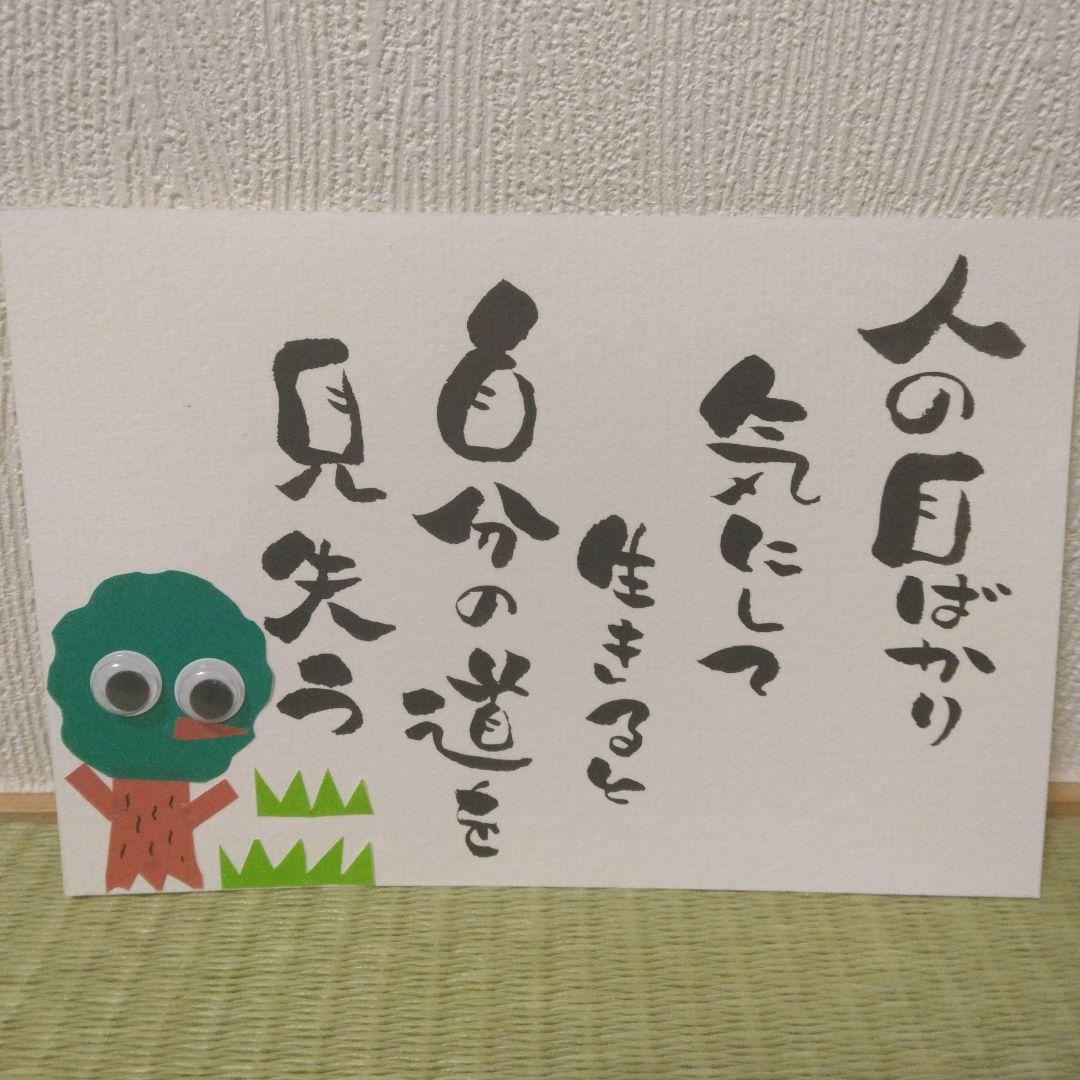 人の目ばかり
気にして
生きると
自分の道を
見失う